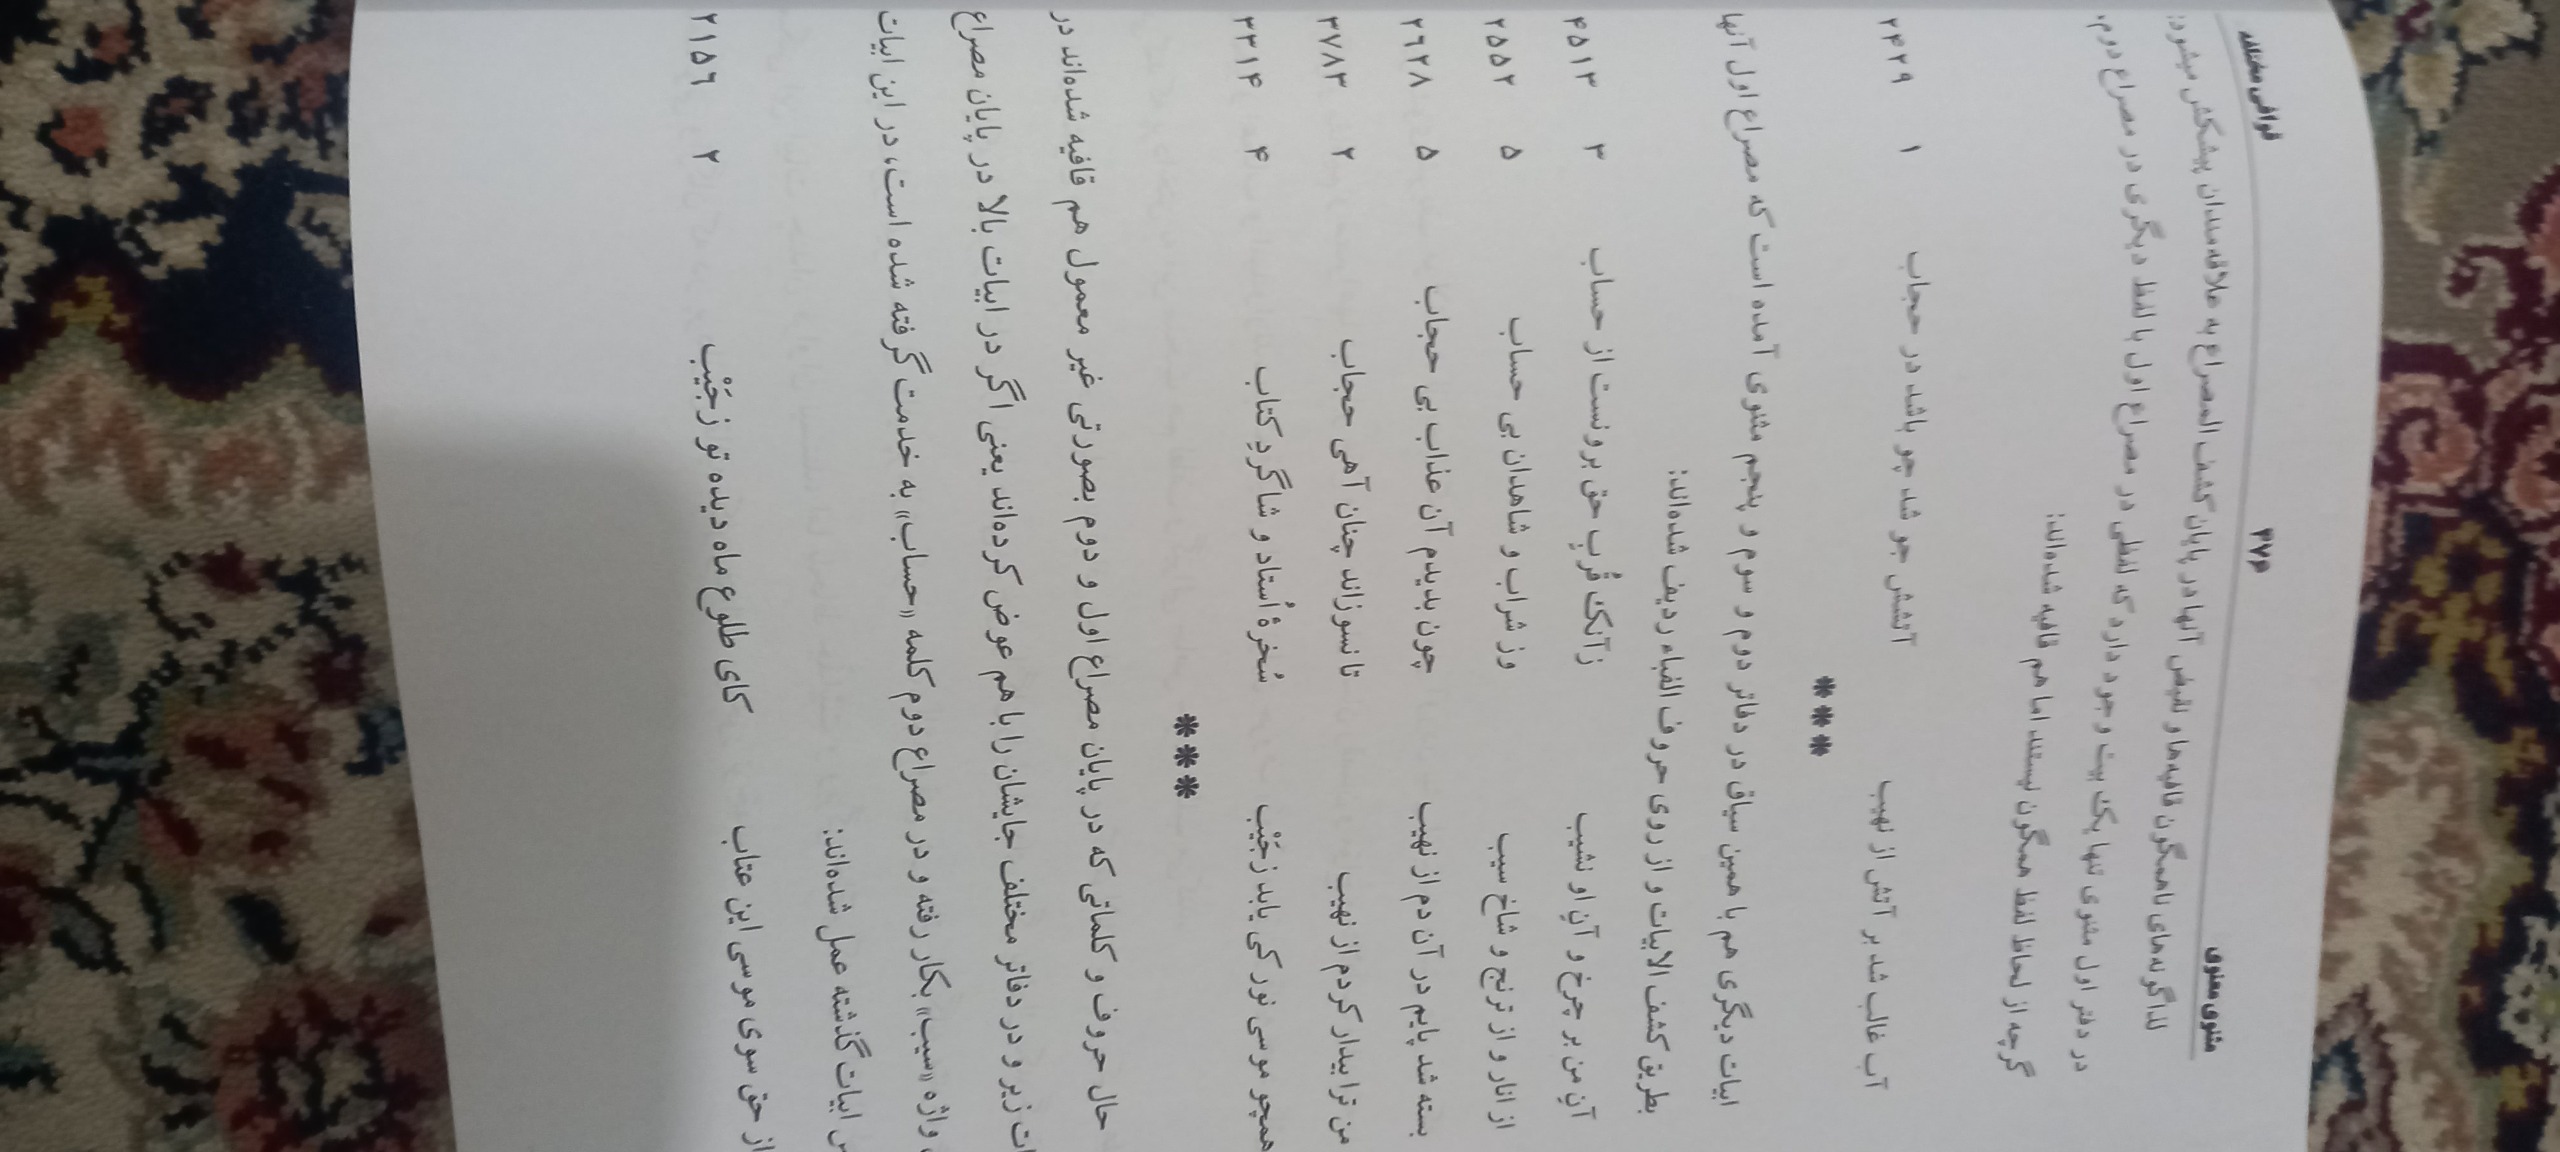 مثنوی معنوی ۳۷۶ قوافی مختلفه
لذا گونه‌های ناهمگون قافیه‌ها و نقیض آنها در پایان کشف المصراع به علاقه‌مندان پیشکش میشود:
در دفتر اول مثنوی تنها یک بیت وجود دارد که لفظی در مصراع اول با لفظ دیگری در مصراع دوم،
گرچه از لحاظ لفظ همگون نیستند اما هم قافیه شده‌اند:
آب غالب شد بر آتش از نهیب آتشش جو شد چو باشد در حجاب ۱ ۲۴۲۹
***
ابیات دیگری هم با همین سیاق در دفاتر دوم و سوم و پنجم مثنوی آمده است که مصراع اول آنها
بطریق کشف الابیات و از روی حروف الفباء ردیف شده‌اند:
آنِ من بر چرخ و آنِ او نشیب زآنک قُربِ حق برونست از حساب ۳ ۴۵۱۳
از انار و از ترنج و شاخ سیب وز شراب و شاهدان بی حساب ۵ ۲۵۵۲
بسته شد پایم در آن دم از نهیب چون بدیدم آن عذاب بی حجاب ۵ ۲۶۲۸
من ترا بیدار کردم از نهیب تا نسوزاند چنان آهی حجاب ۲ ۳۷۸۳
همچو موسی نور کی یابد زجَیْب سُخرهٔ اُستاد و شاگردِ کتاب ۴ ۳۳۱۴
***
حال حروف و کلماتی که در پایان مصراع اول و دوم بصورتی غیر معمول هم قافیه شده‌اند در
زیر و در دفاتر مختلف جایشان را با هم عوض کرده‌اند یعنی اگر در ابیات بالا در پایان مصراع
واژه «سیب» بکار رفته و در مصراع دوم کلمه «حساب» به خدمت گرفته شده است، در این ابیات
ابیات گذشته عمل شده‌اند:
از حق سوی موسی این عتاب کای طلوع ماه دیده تو زجَیْب ۲ ۲۱۵۶